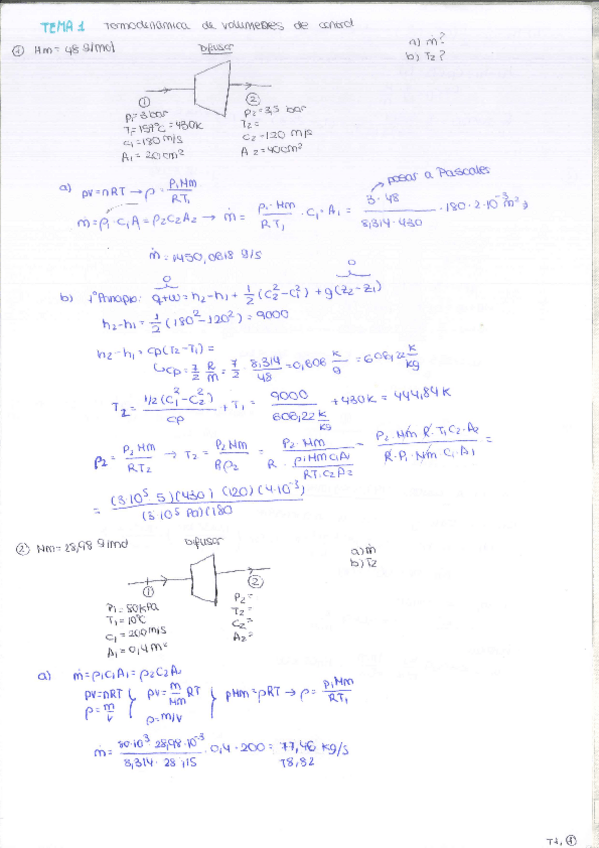 TEMA 1 Termodinámica de volumenes de control
① Mm = 48 g/mol Difusor a) ṁ?
b) T2?
① ②
P1=3 bar P2=3,5 bar
T1=157ºC=430K T2=
C1=180 m/s C2=120 m/s
A1=20cm² A2=40cm²
pasar a Pascales
a) PV=nRT → ρ = P1Mm/RT1
ṁ=ρ1C1A1=ρ2C2A2 → ṁ = P1·Mm/RT1 · C1·A1 = 3·48/8,314·430 · 180·2·10⁻³ m²
ṁ=1450,0818 g/s
0 0
b) 1º Principio: q+w=h2-h1+1/2(C2²-C1²)+g(z2-z1)
h2-h1=1/2(180²-120²)=9000
h2-h1=cp(T2-T1)=
↳ cp=7/2 R/M=7/2·8,314/48=0,606 K/g=606,22 K/kg
T2=1/2(C1²-C2²)/cp+T1=9000/606,22 K/kg+430K=444,84K
ρ2=P2Mm/RT2 → T2=P2Mm/Rρ2=P2·Mm/R·P1MmC1A1/RT1C2A2=P2·Mm·R·T1C2·A2/R·P1·Mm C1·A1=
=(3·10⁵ 5)(430)(120)(4·10⁻³)/(3·10⁵ Pa)(180
② Mm=28,98 g/mol Difusor a) ṁ
b) T2
① ②
P1=80KPa P2=
T1=10ºC T2=
C1=200m/s C2=
A1=0,4m² A2=
a) ṁ=ρ1C1A1=ρ2C2A2
PV=nRT PV=m/Mm RT PMm=ρRT → ρ=P1Mm/RT1
ρ=m/V ρ=m/V
ṁ=80·10³·28,98·10⁻³/8,314·28,15·0,4·200=77,46 kg/s
78,82
T1, ①